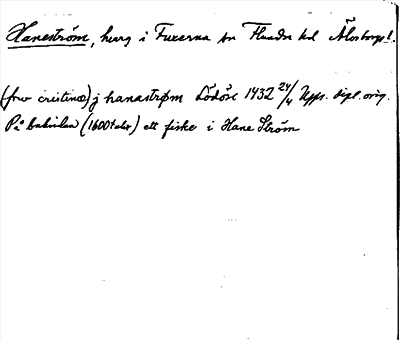 Haneström, herg i Fuxerna sn Flundre hd Älvsborgs l.
(fru cristine) j hanastrøm Lödöse 1432 24/4 Upps. dipl. orig.
På baksidan (1600t alr) ett fiske i Hane Ström